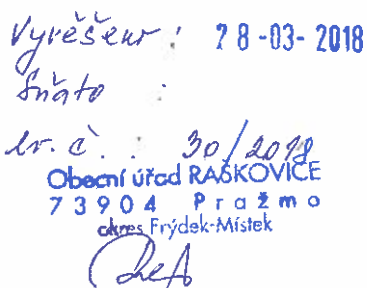 Vyvěšeno : 28-03-2018
Sňato :
čr. č. : 30/2018
Obecní úřad RAŠKOVICE
73904 Pražmo
okres Frýdek-Místek